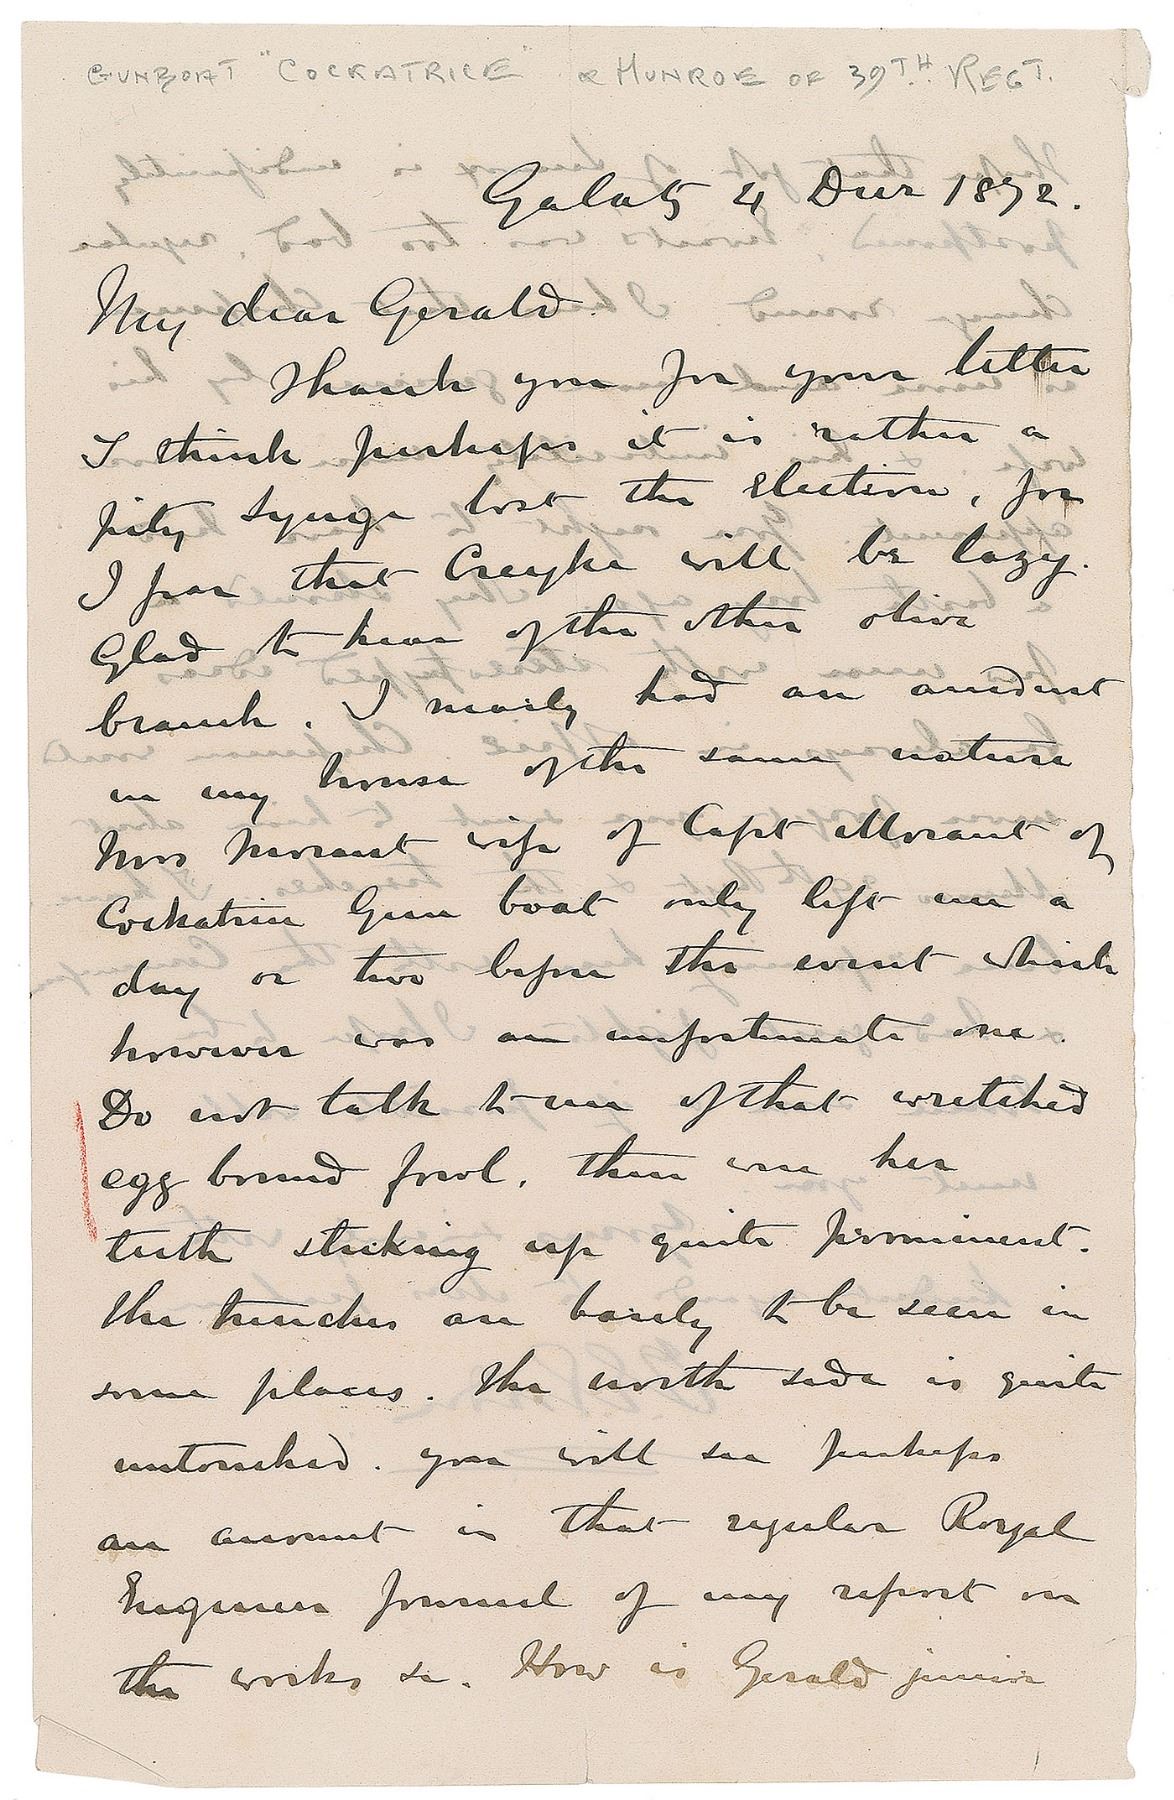 GUNBOAT "COCKATRICE" & MUNROE OF 39TH. REGT.
Galatz 4 Decr 1872.
My dear Gerald.
Thank you for your letter
I think perhaps it is rather a
pity Synge lost the Election, for
I fear that Creyke will be lazy.
Glad to hear of the other olive
branch. I nearly had an accident
in my house of the same nature
Mrs Morant wife of Capt Morant of
Cockatrice Gun boat only left me a
day or two before the event which
however was an unfortunate one.
Do not talk to me of that wretched
egg bound fowl. there were her
teeth sticking up quite prominent.
The trenches are barely to be seen in
some places. The north side is quite
untouched. you will see perhaps
an account in that regular Royal
Engineer Journal of my report on
the works &c. How is Gerald junior